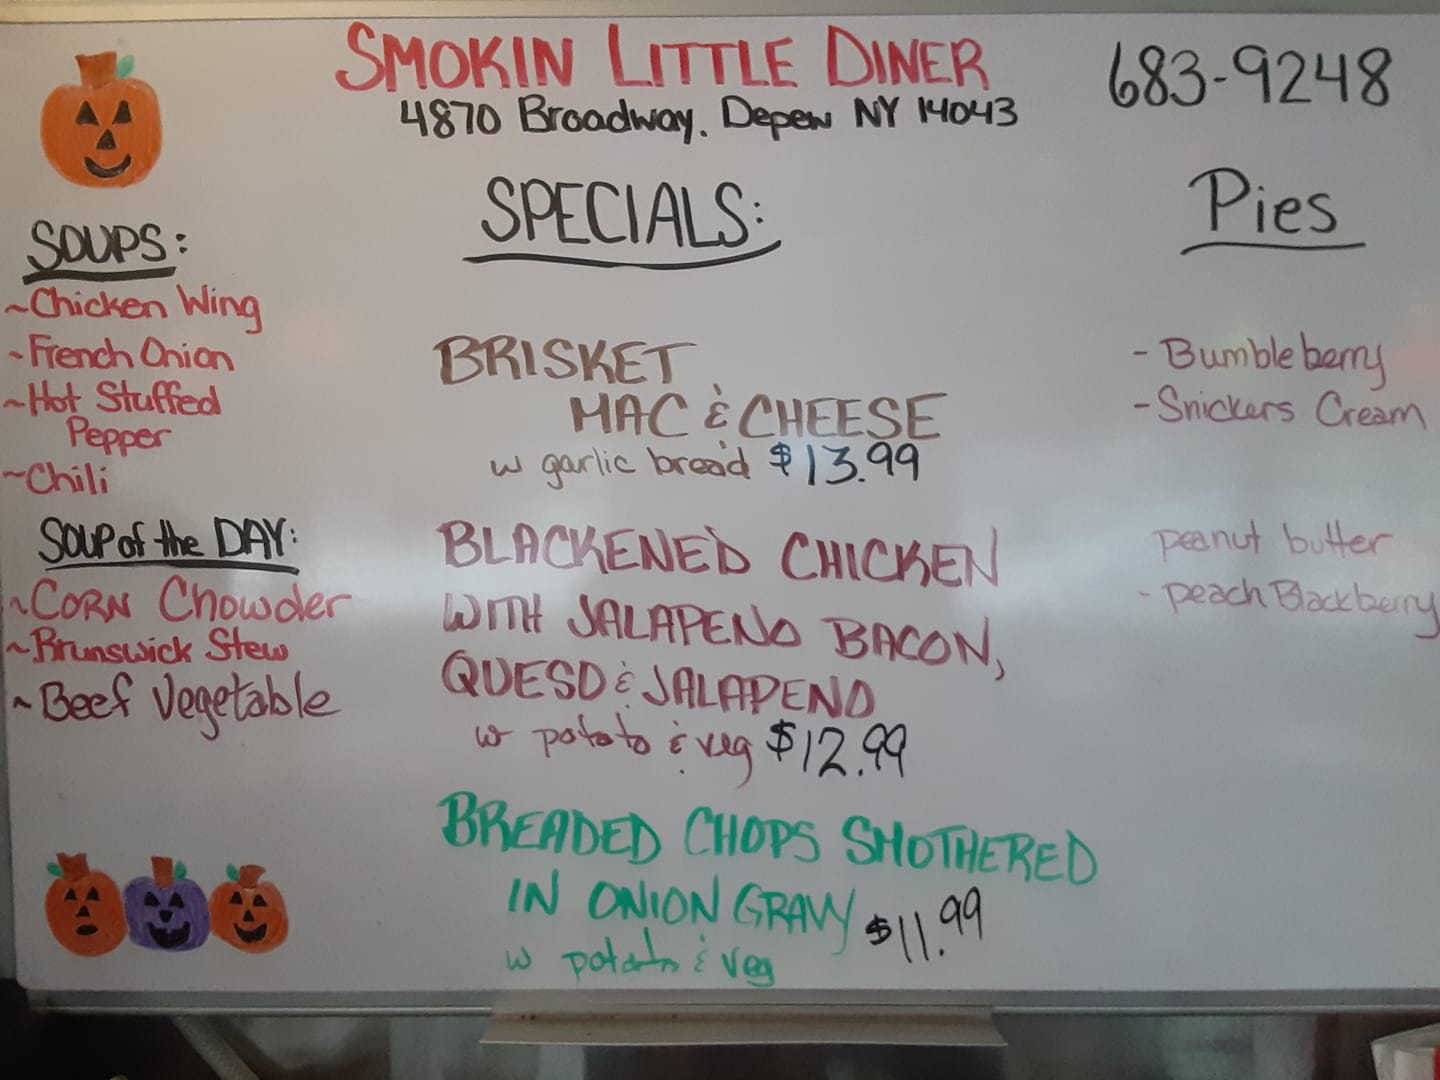 SMOKIN LITTLE DINER
683-9248
4870 Broadway. Depew NY 14043
SOUPS:
~Chicken Wing
~French Onion
~Hot Stuffed
Pepper
~Chili
SOUP of the DAY:
~CORN Chowder
~Brunswick Stew
~Beef Vegetable
SPECIALS:
BRISKET
MAC & CHEESE
w garlic bread $13.99
BLACKENED CHICKEN
WITH JALAPENO BACON,
QUESO & JALAPENO
w potato & veg $12.99
BREADED CHOPS SMOTHERED
IN ONION GRAVY $11.99
w potato & veg
Pies
- Bumbleberry
- Snickers Cream
peanut butter
- peach Blackberry